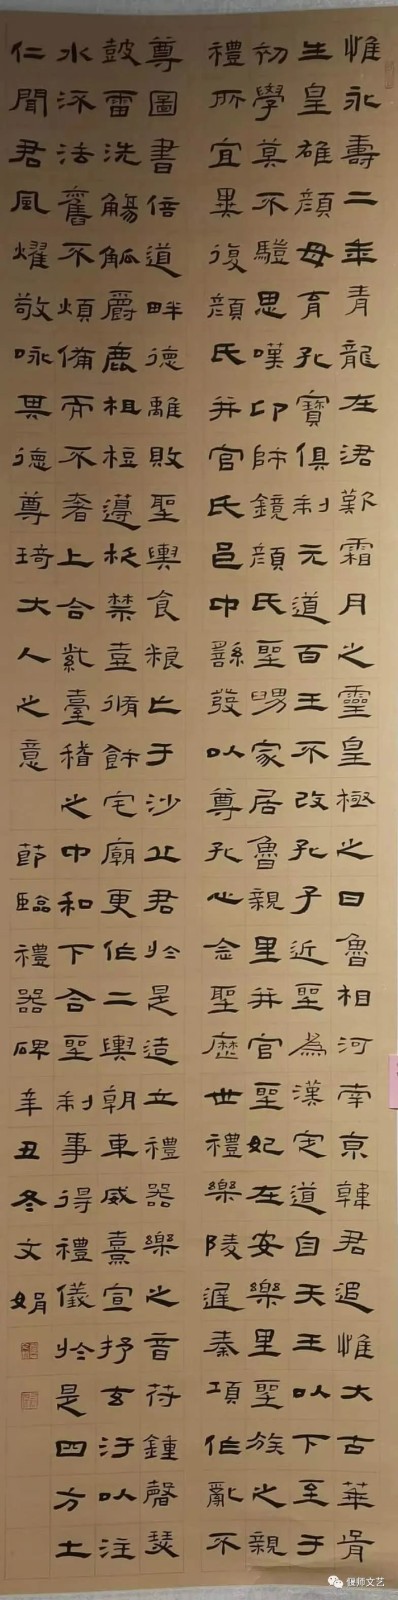 惟永壽二年青龍在涒歎霜月之靈皇極之日魯相河南京韓君追惟大古華胥
生皇雄顏母育孔寶俱制元道百王不改孔子近聖為漢定道自天王以下至于
初學莫不驥思嘆卬師鏡顏氏聖舅家居魯親里并官聖妃在安樂里聖族之親
禮所宜異復顏氏并官氏邑中繇發以尊孔心念聖歷世禮樂陵遲秦項作亂不
尊圖書倍道畔德離敗聖輿食粮亡于沙丘君於是造立禮器樂之音苻鍾磬瑟
鼓雷洗觴觚爵鹿柤梪籩柉禁壺脩飾宅廟更作二輿朝車威熹宣抒玄汙以注
水流法舊不煩備而不奢上合紫臺稽之中和下合聖制事得禮儀於是四方土
仁聞君風耀敬咏其德尊琦大人之意 節臨禮器碑辛丑冬文娟
偃师文艺